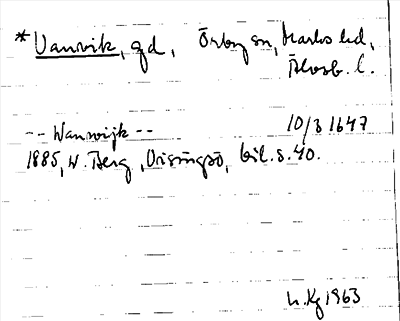 * Vanvik, gd, Örby sn, Marks hd,
Älvsb. l.
-- Wanwijk -- 10/3 1647
1885, W. Berg, Visingsö, bil. s. 40.
L. Kg 1963